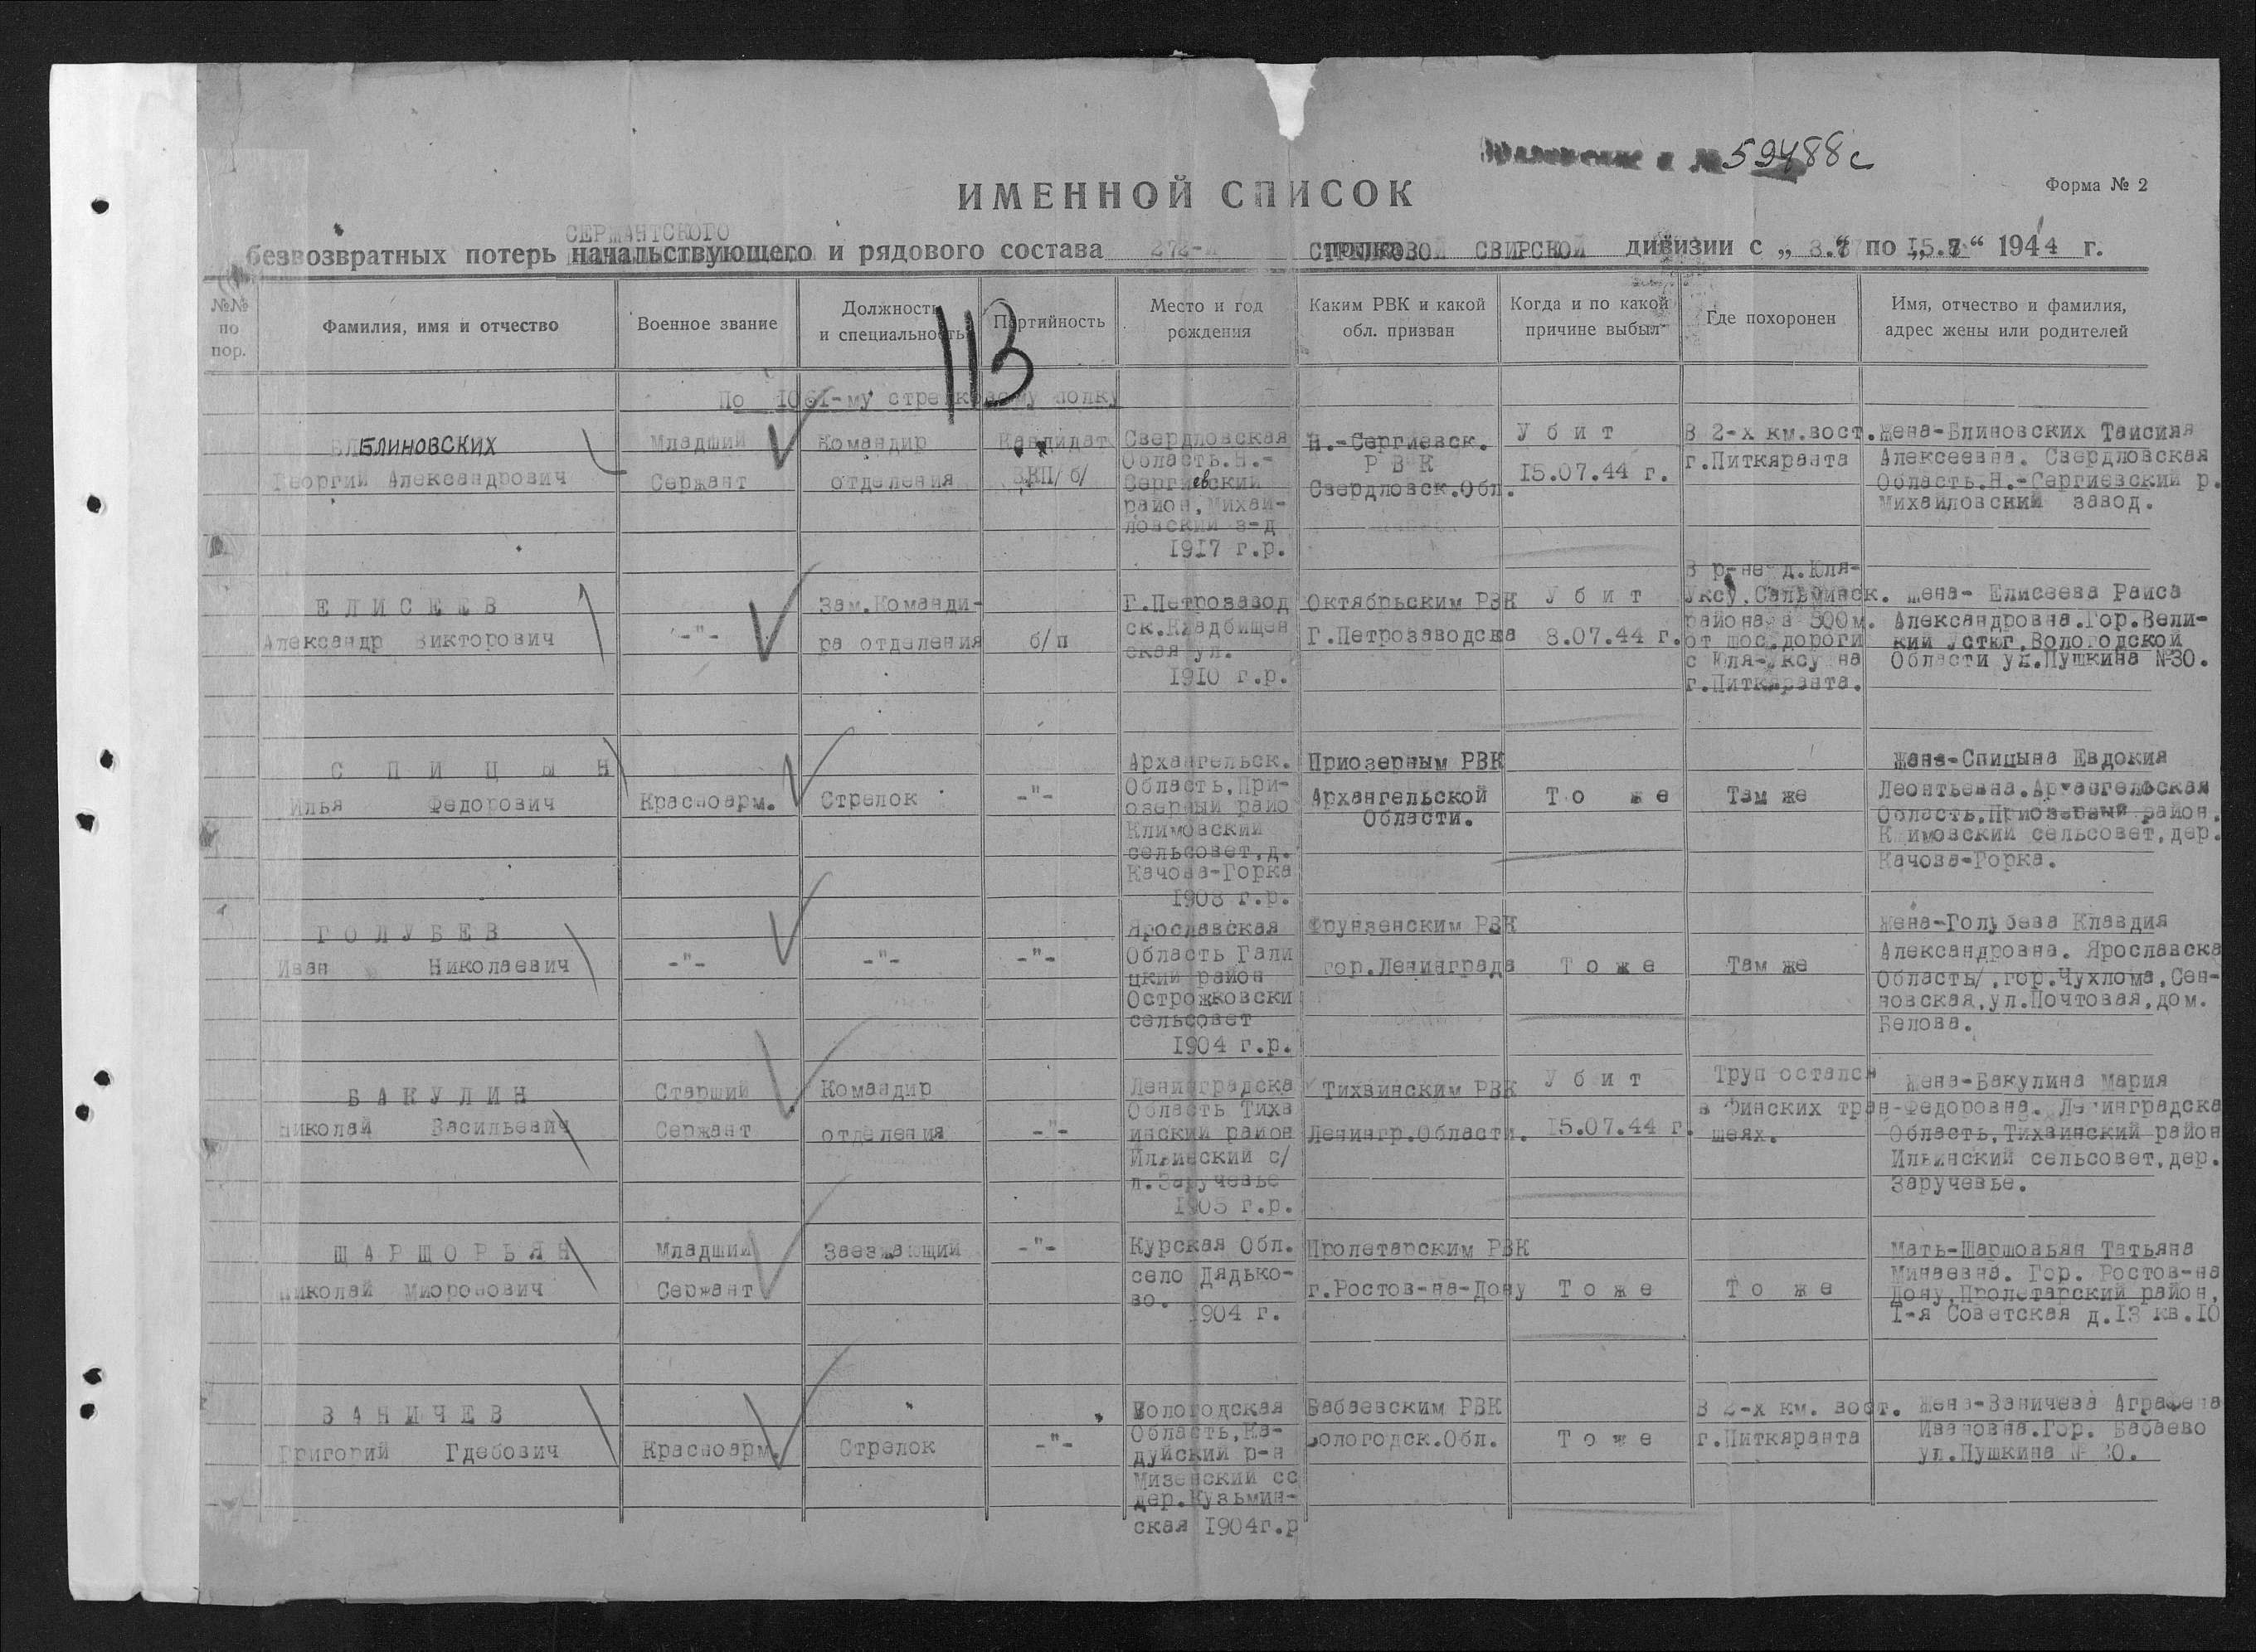 № 59488с
ИМЕННОЙ СПИСОК
Форма № 2
СЕРЖАНТСКОГО
безвозвратных потерь начальствующего и рядового состава 272-й СТРЕЛКОВОЙ СВИРСКОЙ дивизии с „ 8.7 “ по „ 15.7 “ 1944 г.
№№ по пор.
Фамилия, имя и отчество
Военное звание
Должность и специальность
Партийность
Место и год рождения
Каким РВК и какой обл. призван
Когда и по какой причине выбыл
Где похоронен
Имя, отчество и фамилия, адрес жены или родителей
113
По 1061-му стрелковому полку
БЛИНОВСКИХ
Георгий Александрович
Младший
Сержант
Командир
отделения
Кандидат
ВКП/б/
Свердловская
Область.Н.-
Сергиевский
район, Михай-
ловский з-д
1917 г.р.
Н.-Сергиевск.
РВК
Свердловск.Обл.
Убит
15.07.44 г.
В 2-х км.вост.
г.Питкяранта
Жена-Блиновских Таисия
Алексеевна. Свердловская
Область.Н.-Сергиевский р.
Михайловский завод.
ЕЛИСЕЕВ
Александр Викторович
-"-
Зам.Команди-
ра отделения
б/п
Г.Петрозавод
ск.Кладбищен
ская ул.
1910 г.р.
Октябрьским РВК
Г.Петрозаводска
Убит
8.07.44 г.
В р-не д.Юля-
Уксу.Сальминск.
района в 500м.
от шос.дороги
с Юля-Уксу на
г.Питкяранта.
Жена- Елисеева Раиса
Александровна.Гор.Вели-
кий Устюг,Вологодской
Области ул.Пушкина №30.
СПИЦЫН
Илья Федорович
Красноарм.
Стрелок
-"-
Архангельск.
Область,При-
озерный райо
Климовский
сельсовет,д.
Качова-Горка
1908 г.р.
Приозерным РВК
Архангельской
Области.
То же
Там же
Жена-Спицына Евдокия
Леонтьевна.Архангельская
Область,Приозерный район.
Климовский сельсовет,дер.
Качова-Горка.
ГОЛУБЕВ
Иван Николаевич
-"-
-"-
-"-
Ярославская
Область Гали
цкий район
Острожковски
сельсовет
1904 г.р.
Фрунзенским РВК
гор.Ленинграда
Тоже
Там же
Жена-Голубева Клавдия
Александровна. Ярославска
Область/,гор.Чухлома,Сен-
новская,ул.Почтовая,дом.
Белова.
БАКУЛИН
Николай Васильевич
Старший
Сержант
Командир
отделения
-"-
Ленинградска
Область Тихв
инский район
Ильинский с/
д.Заручевье
1905 г.р.
Тихвинским РВК
Ленингр.Области.
Убит
15.07.44 г.
Труп остался
в Финских тран-
шеях.
Жена-Бакулина Мария
Федоровна. Ленинградска
Область,Тихвинский район
Ильинский сельсовет,дер.
Заручевье.
ШАРШОРЬЯН
Николай Миоронович
Младший
Сержант
Заезжающий
-"-
Курская Обл.
село Дядько-
во.
1904 г.
Пролетарским РВК
г.Ростов-на-Дону
Тоже
То же
Мать-Шаршовьян Татьяна
Минаевна. Гор. Ростов-на
Дону,Пролетарский район,
1-я Советская д.13 кв.10
ВАНИЧЕВ
Григорий Гдебович
Красноарм.
Стрелок
-"-
Вологодская
Область,Ка-
дуйский р-н
Мизенский сс
дер.Кузьмин-
ская 1904г.р
Бабаевским РВК
Вологодск.Обл.
Тоже
В 2-х км. вост.
г.Питкяранта
Жена-Ваничева Аграфена
Ивановна.Гор. Бабаево
ул.Пушкина №